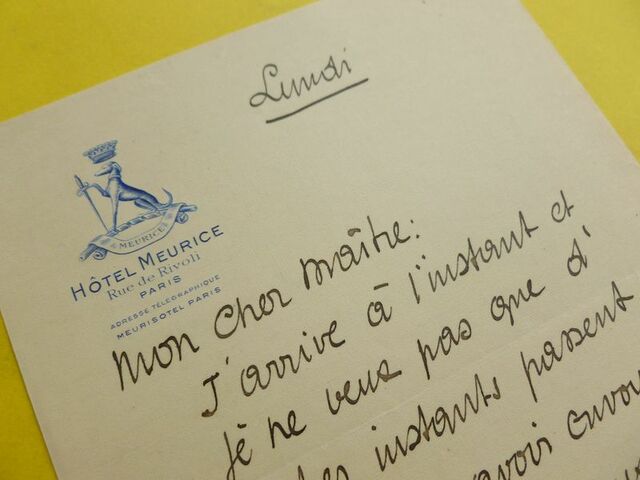 Lundi
MEURICE
HÔTEL MEURICE
Rue de Rivoli
PARIS
ADRESSE TÉLÉGRAPHIQUE
MEURISOTEL PARIS
Mon Cher Maître:
J'arrive à l'instant et
je ne veux pas que d'
instants passent
avoir envoy